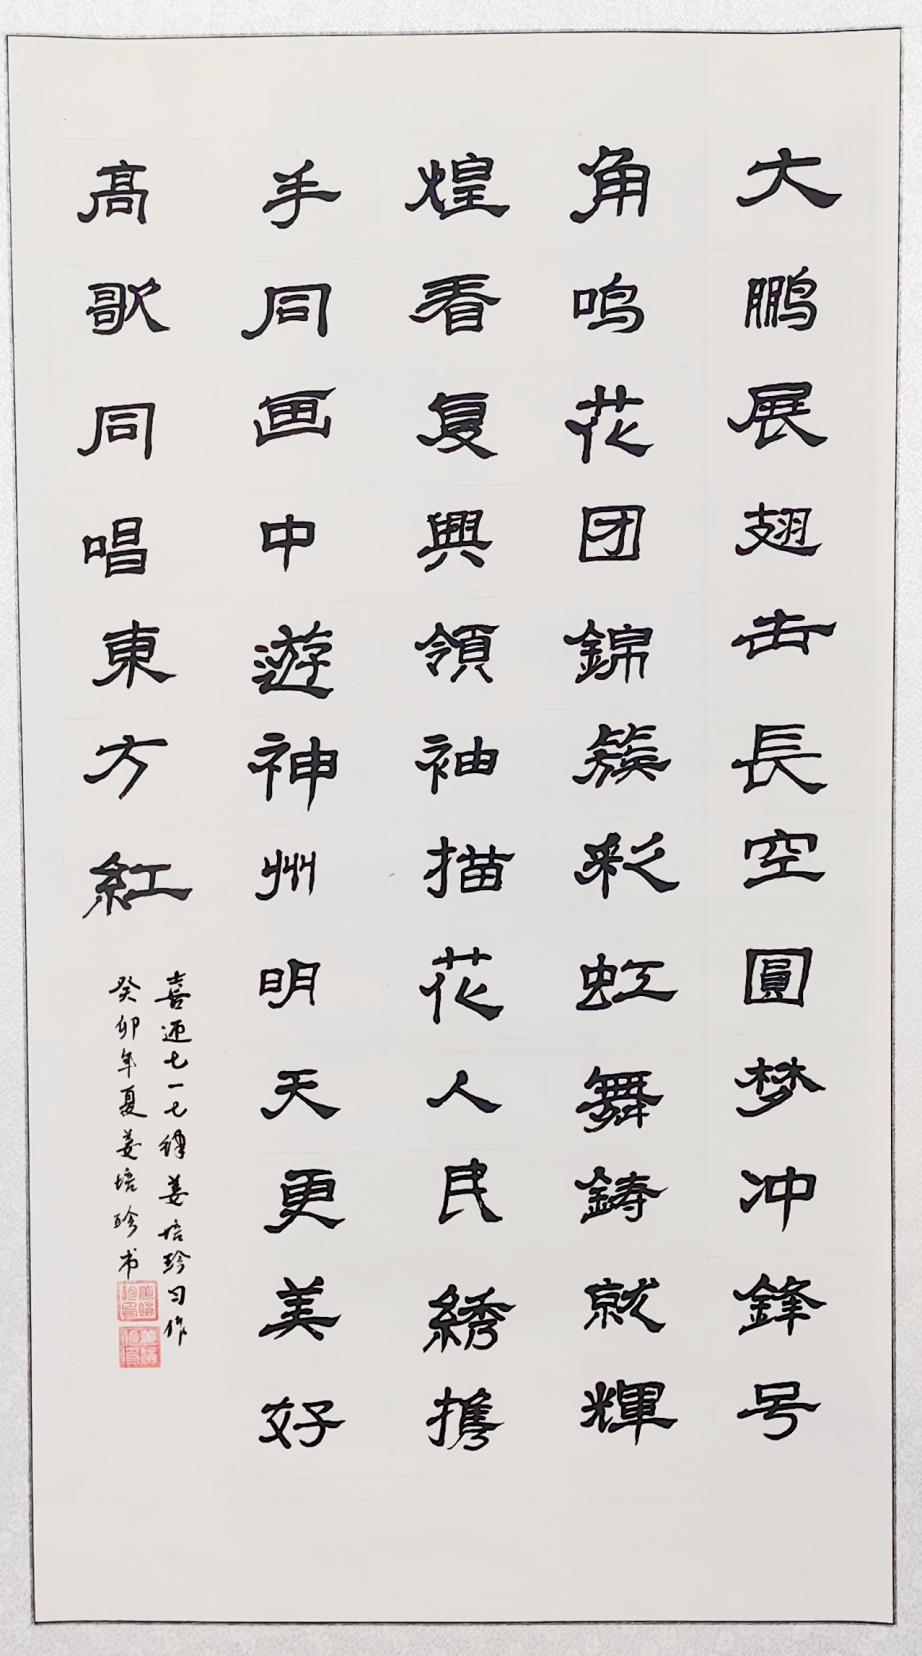 大鹏展翅击長空圓梦冲鋒号
角鸣花团錦簇彩虹舞鋳就輝
煌看复興領袖描花人民綉携
手同画中遊神州明天更美好
高歌同唱東方紅
喜迎七一七律姜培珍习作
癸卯年夏姜培珍书